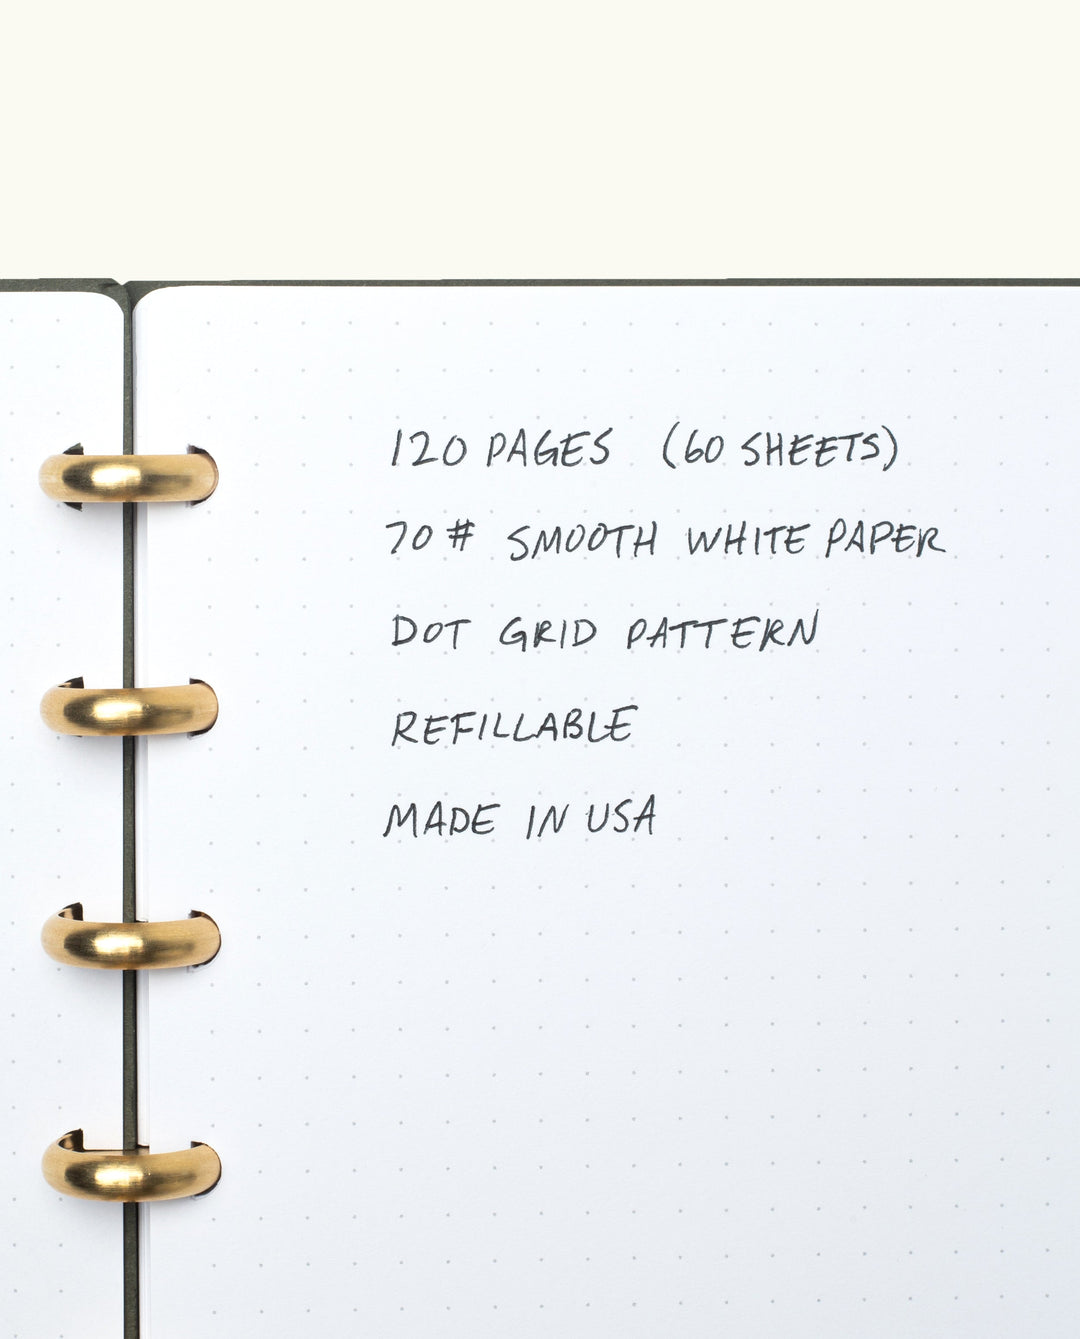 120 PAGES (60 SHEETS)
70# SMOOTH WHITE PAPER
DOT GRID PATTERN
REFILLABLE
MADE IN USA